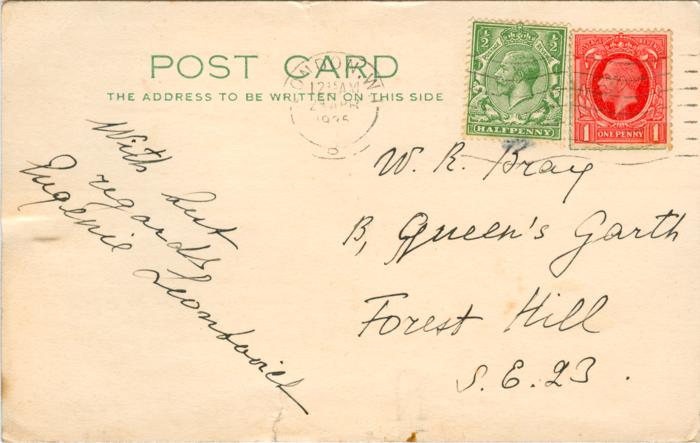 POST CARD
THE ADDRESS TO BE WRITTEN ON THIS SIDE
LONDON. W
12 15 AM
APR
1935
HALFPENNY
ONE PENNY
1 1
With best
regards
Eugenie Leontovich
W. R. Bray
B, Queen's Garth
Forest Hill
S. E. 23.